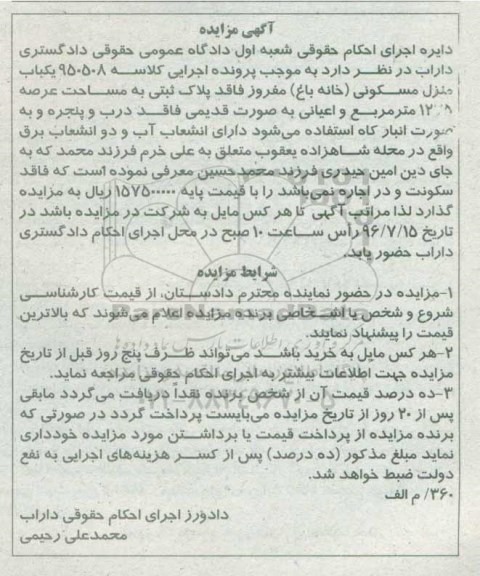 آگهی مزایده
دایره اجرای احکام حقوقی شعبه اول دادگاه عمومی حقوقی دادگستری
داراب در نظر دارد به موجب پرونده اجرایی کلاسه ۹۵۰۵۰۸ یکباب
منزل مسکونی (خانه باغ) مفروز فاقد پلاک ثبتی به مساحت عرصه
مترمربع و اعیانی به صورت قدیمی فاقد درب و پنجره و به
صورت انبار کاه استفاده می‌شود دارای انشعاب آب و دو انشعاب برق
واقع در محله شاهزاده یعقوب متعلق به علی خرم فرزند محمد که به
جای دین امین حیدری فرزند محمدحسین معرفی نموده است که فاقد
سکونت و در اجاره نمی‌باشد را با قیمت پایه ۱۵۷۵۰۰۰۰۰ ریال به مزایده
گذارد لذا مراتب آگهی تا هر کس مایل به شرکت در مزایده باشد در
تاریخ ۹۶/۷/۱۵ رأس ساعت ۱۰ صبح در محل اجرای احکام دادگستری
داراب حضور یابد.
شرایط مزایده
۱-مزایده در حضور نماینده محترم دادستان، از قیمت کارشناسی
شروع و شخص یا اشخاصی برنده مزایده اعلام می‌شوند که بالاترین
قیمت را پیشنهاد نمایند.
۲-هر کس مایل به خرید باشد می‌تواند ظرف پنج روز قبل از تاریخ
مزایده جهت اطلاعات بیشتر به اجرای احکام حقوقی مراجعه نماید.
۳-ده درصد قیمت آن از شخص برنده نقداً دریافت می‌گردد مابقی
پس از ۲۰ روز از تاریخ مزایده می‌بایست پرداخت گردد در صورتی که
برنده مزایده از پرداخت قیمت یا برداشتن مورد مزایده خودداری
نماید مبلغ مذکور (ده درصد) پس از کسر هزینه‌های اجرایی به نفع
دولت ضبط خواهد شد.
۳۶۰/ م الف
دادورز اجرای احکام حقوقی داراب
محمدعلی رحیمی